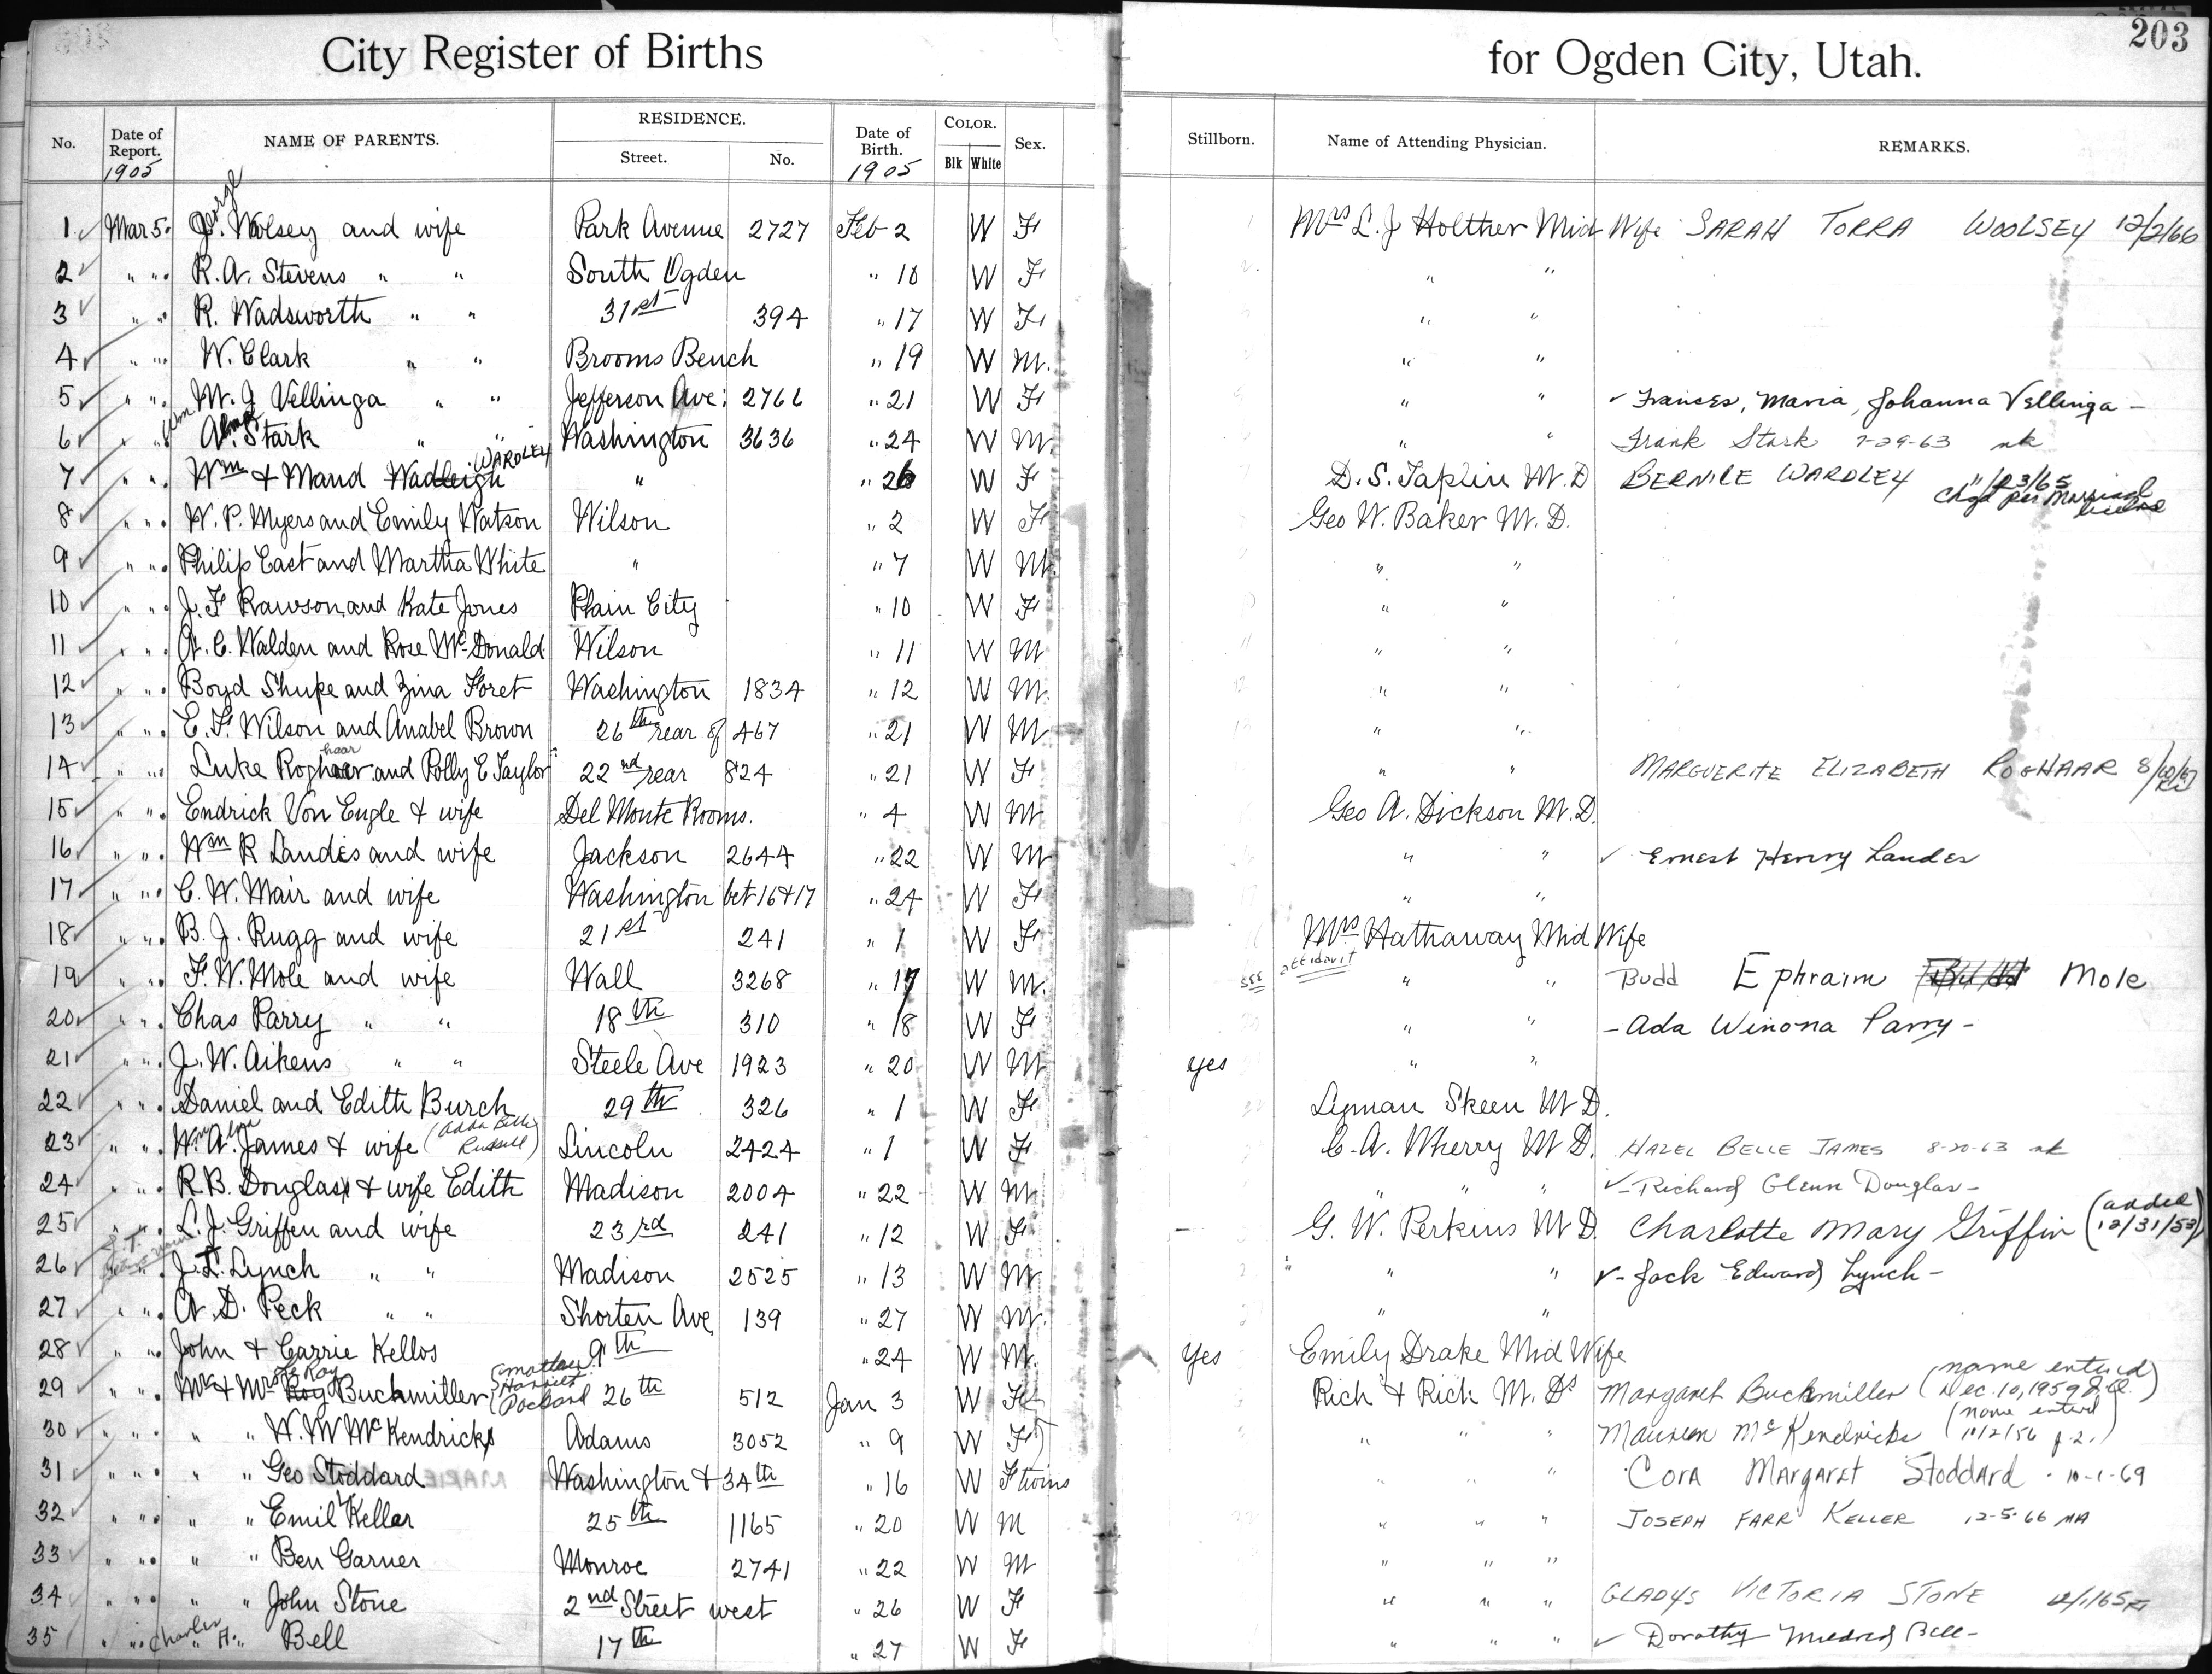 203
City Register of Births for Ogden City, Utah.
No. Date of Report. NAME OF PARENTS. RESIDENCE. Street. No. Date of Birth. COLOR. Blk White Sex. Stillborn. Name of Attending Physician. REMARKS.
1905 1905
George
1 Mar 5. J. Wolsey and wife Park Avenue 2727 Feb 2 W F Mrs L. J Holther Mid Wife SARAH TORRA WOOLSEY 12/2/66
2 " " R. A. Stevens " " South Ogden " 10 W F " "
3 " " R. Wadsworth " " 31st 394 " 17 W F " "
4 " " W. Clark " " Brooms Bench " 19 W M. " "
5 " " M. J Vellinga " " Jefferson Ave. 2766 " 21 W F " " Frances, Maria, Johanna Vellinga -
6 " " Wm. Alma A. Stark " " Washington 3636 " 24 W M. " " Frank Stark 7-29-63 nk
WARDLEY
7 " " Wm & Maud Wadleigh " " 26 W F D. S. Taplin M. D BERNICE WARDLEY 11/23/65 Chgd per Marriage license
8 " " W. P. Myers and Emily Watson Wilson " 2 W F Geo W. Baker M. D.
9 " " Philip East and Martha White " " 7 W M. " "
10 " " J. F Rawson and Kate Jones Plain City " 10 W F " "
11 " " A. C. Walden and Rose McDonald Wilson " 11 W M " "
12 " " Boyd Shupe and Zina Foret Washington 1834 " 12 W M. " "
13 " " E. F. Wilson and Anabel Brown 26th rear of 467 " 21 W M. " "
haar
14 " " Luke Roghaar and Polly E Taylor 22nd rear 824 " 21 W F " " MARGUERITE ELIZABETH ROGHAAR
15 " " Endrick Von Engle & wife Del Monte Rooms. " 4 W M Geo A. Dickson M. D.
16 " " Wm R Landes and wife Jackson 2644 " 22 W M " " Ernest Henry Landes
17 " " C. W. Mair and wife Washington bet 16 & 17 " 24 W F " "
18 " " B. J. Rugg and wife 21st 241 " 1 W F Mrs Hathaway Mid Wife
see affidavit
19 " " F. W. Mole and wife Wall 3268 " 17 W M. " " Budd Ephraim Mole
20 " " Chas Parry " " 18th 310 " 18 W F " " - Ada Winona Parry -
21 " " J. W. Aikens " " Steele Ave 1923 " 20 W M yes " "
22 " " Daniel and Edith Burch 29th 326 " 1 W F Lyman Skeen M D.
23 " " Wm Alma A. James & wife (Adda Belle Russell) Lincoln 2424 " 1 W F C. A. Wherry M D. HAZEL BELLE JAMES 8-20-63 nk
24 " " R. B. Douglass & wife Edith Madison 2004 " 22 W M " " " - Richard Glenn Douglas -
25 " " L. J. Griffen and wife 23rd 241 " 12 W F - G. W. Perkins M D. Charlotte Mary Griffin (added 12/31/53)
26 " J. T. Lynch " " Madison 2525 " 13 W M " " " - Jack Edward Lynch -
27 " " A. D. Peck " " Shorten Ave 139 " 27 W M. " "
28 " " John & Carrie Kellos 9th " 24 W M. Yes Emily Drake Mid Wife
29 " " Mr & Mrs Roy Le Roy Buchmiller (mother Harriet Packard 26th 512 Jan 3 W F Rich & Rich M. Ds Margaret Buchmiller (name entered Dec. 10, 1959 J.Q.)
30 " " " " H. M McKendricks Adams 3052 " 9 W F " " " Maurien McKendricks (name enterd 10/2/56 J.Q.)
31 " " " " Geo Stoddard Washington & 34th " 16 W F twins " " " Cora Margaret Stoddard . 10-1-69
32 " " " " Emil Keller 25th 1165 " 20 W M " " " JOSEPH FARR KELLER 12-5-66 MA
33 " " " " Ben Garner Monroe 2741 " 22 W M " " "
34 " " " " John Stone 2nd Street west " 26 W F " " " GLADYS VICTORIA STONE 12/1/65
35 " " Charles H. " Bell 17th " 27 W F " " " Dorathy Mildred Bell -